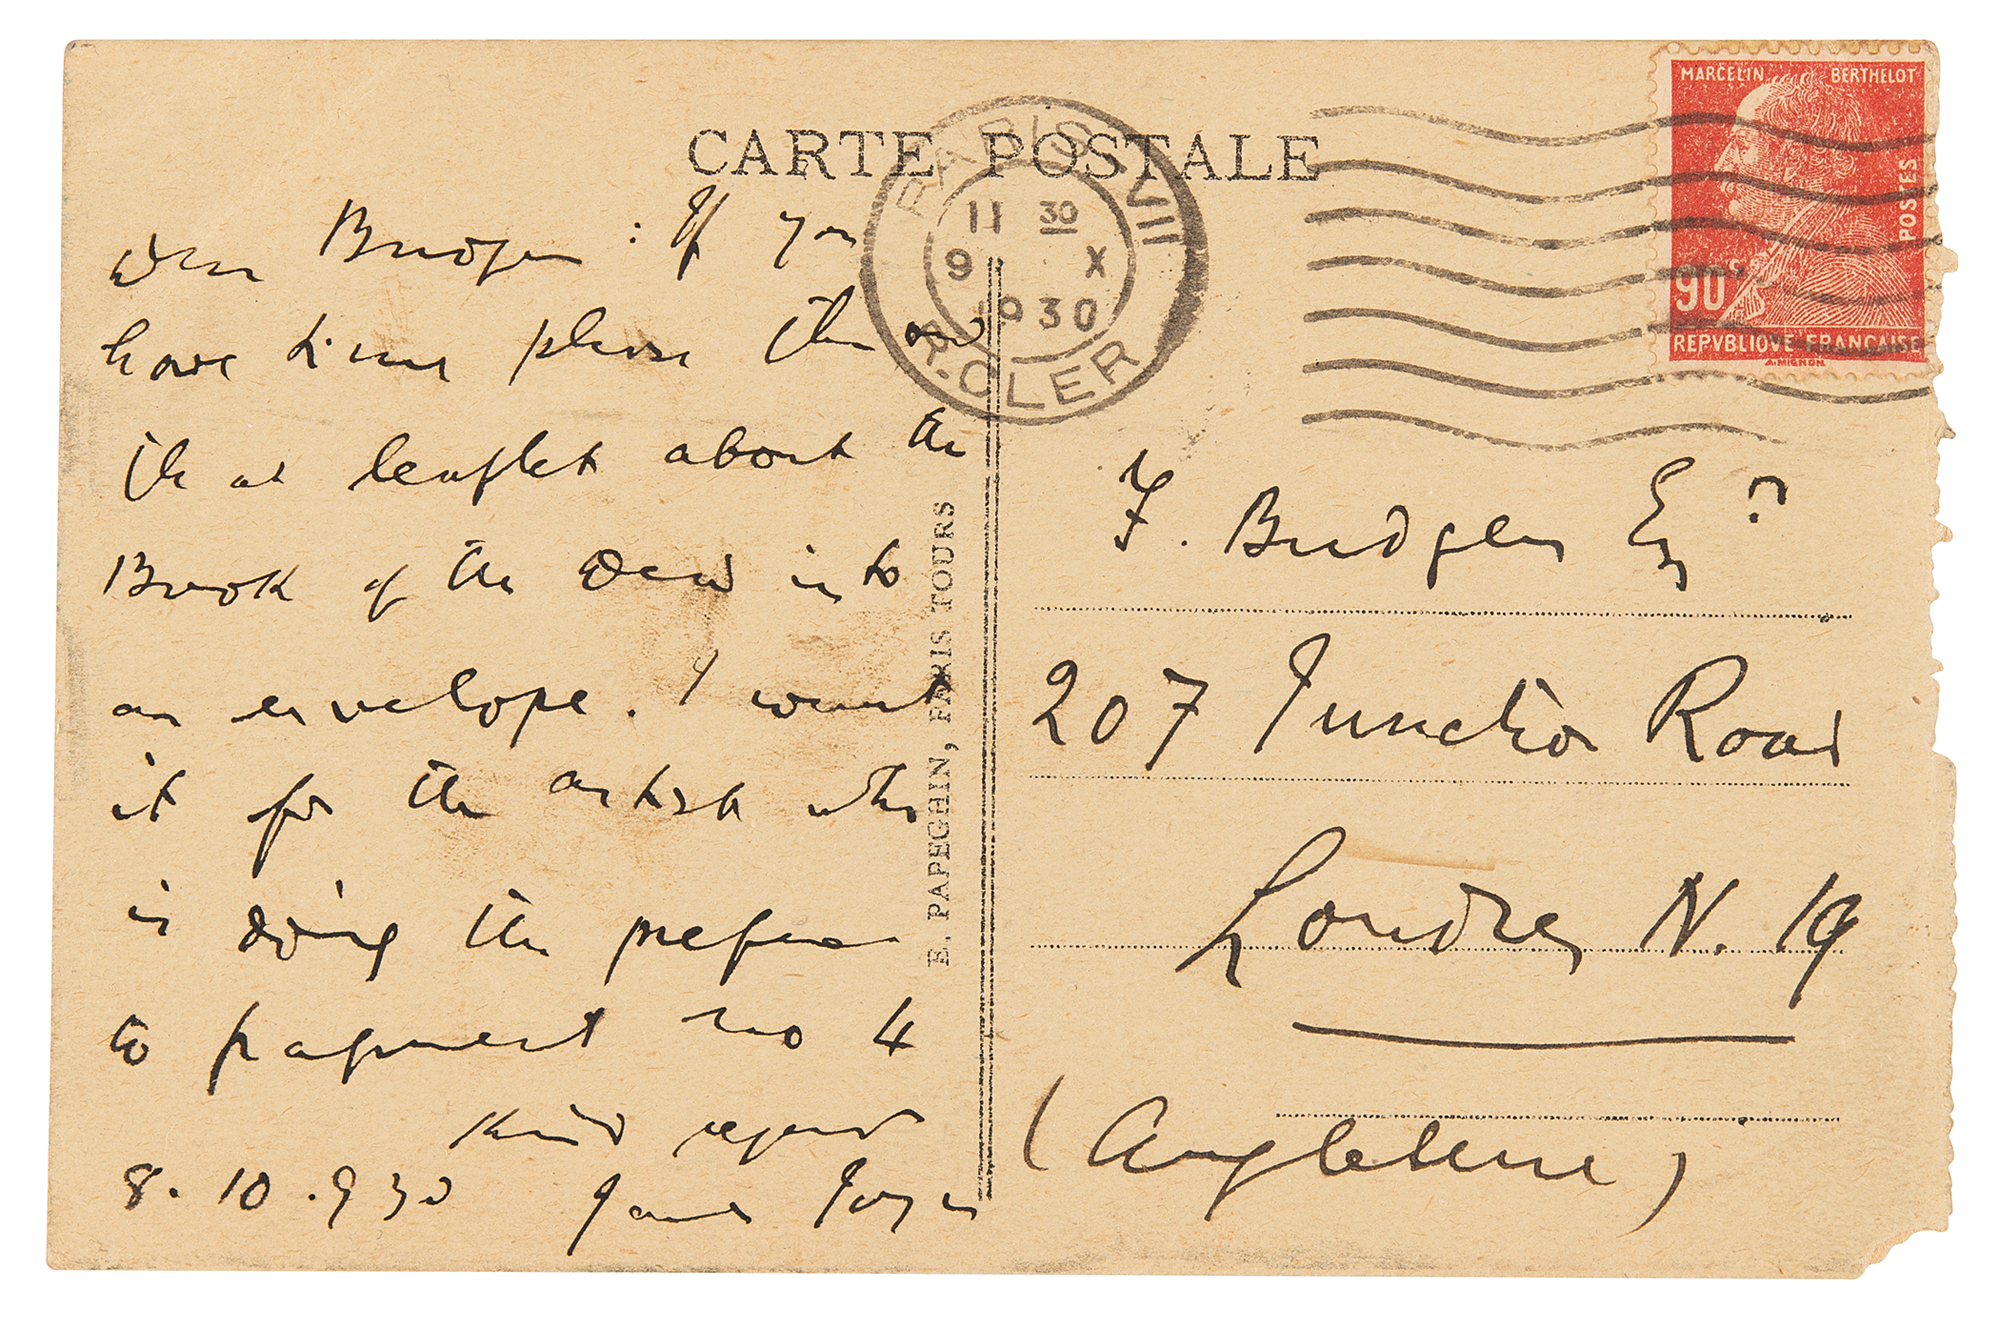 CARTE POSTALE
Dear Budgen : If you
have time please throw
that leaflet about the
Book of the Dead into
an envelope. I want
it for the artist who
is doing the preface
to fragment no 4
Kind regards
8. 10 .930 James Joyce
E. PAPEGHIN, PARIS TOURS
PARIS VII
11 30
9 X
1930
R. CLER
MARCELIN BERTHELOT
POSTES
90c
REPVBLIQVE FRANÇAISE
A. MIGNON
F. Budgen Esqr
207 Junction Road
Londres N. 19
(Angleterre)